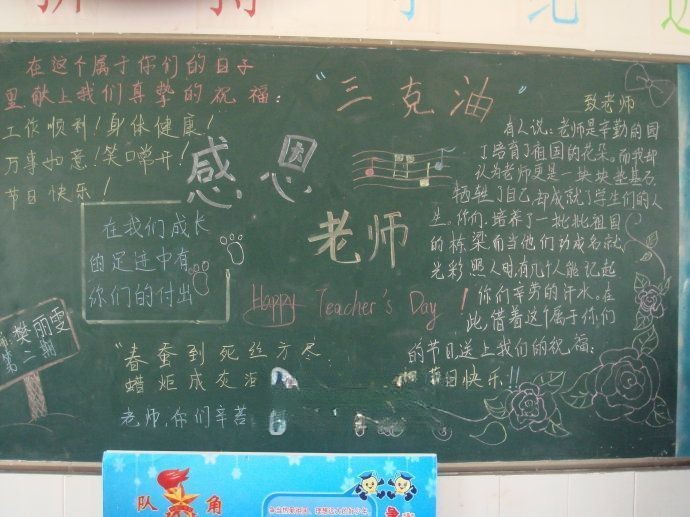 在这个属于你们的日子
里献上我们真挚的祝福：
工作顺利！身体健康！
万事如意！笑口常开！
节日快乐！
感恩
"三克油"
老师
Happy Teacher's Day！
在我们成长
的足迹中有
你们的付出
樊丽雯
第二期
"春蚕到死丝方尽
蜡炬成灰泪
老师，你们辛苦
致老师
有人说：老师是辛勤的园
丁培育了祖国的花朵。而我却
认为老师更是一块块垫基石，
牺牲了自己却成就了学生们的人
生。你们，培养了一批批祖国
的栋梁而当他们功成名就，
光彩照人时有几个人能记起
你们辛劳的汗水。在
此，借着这个属于你们
的节日送上我们的祝福：
节日快乐！！
队角